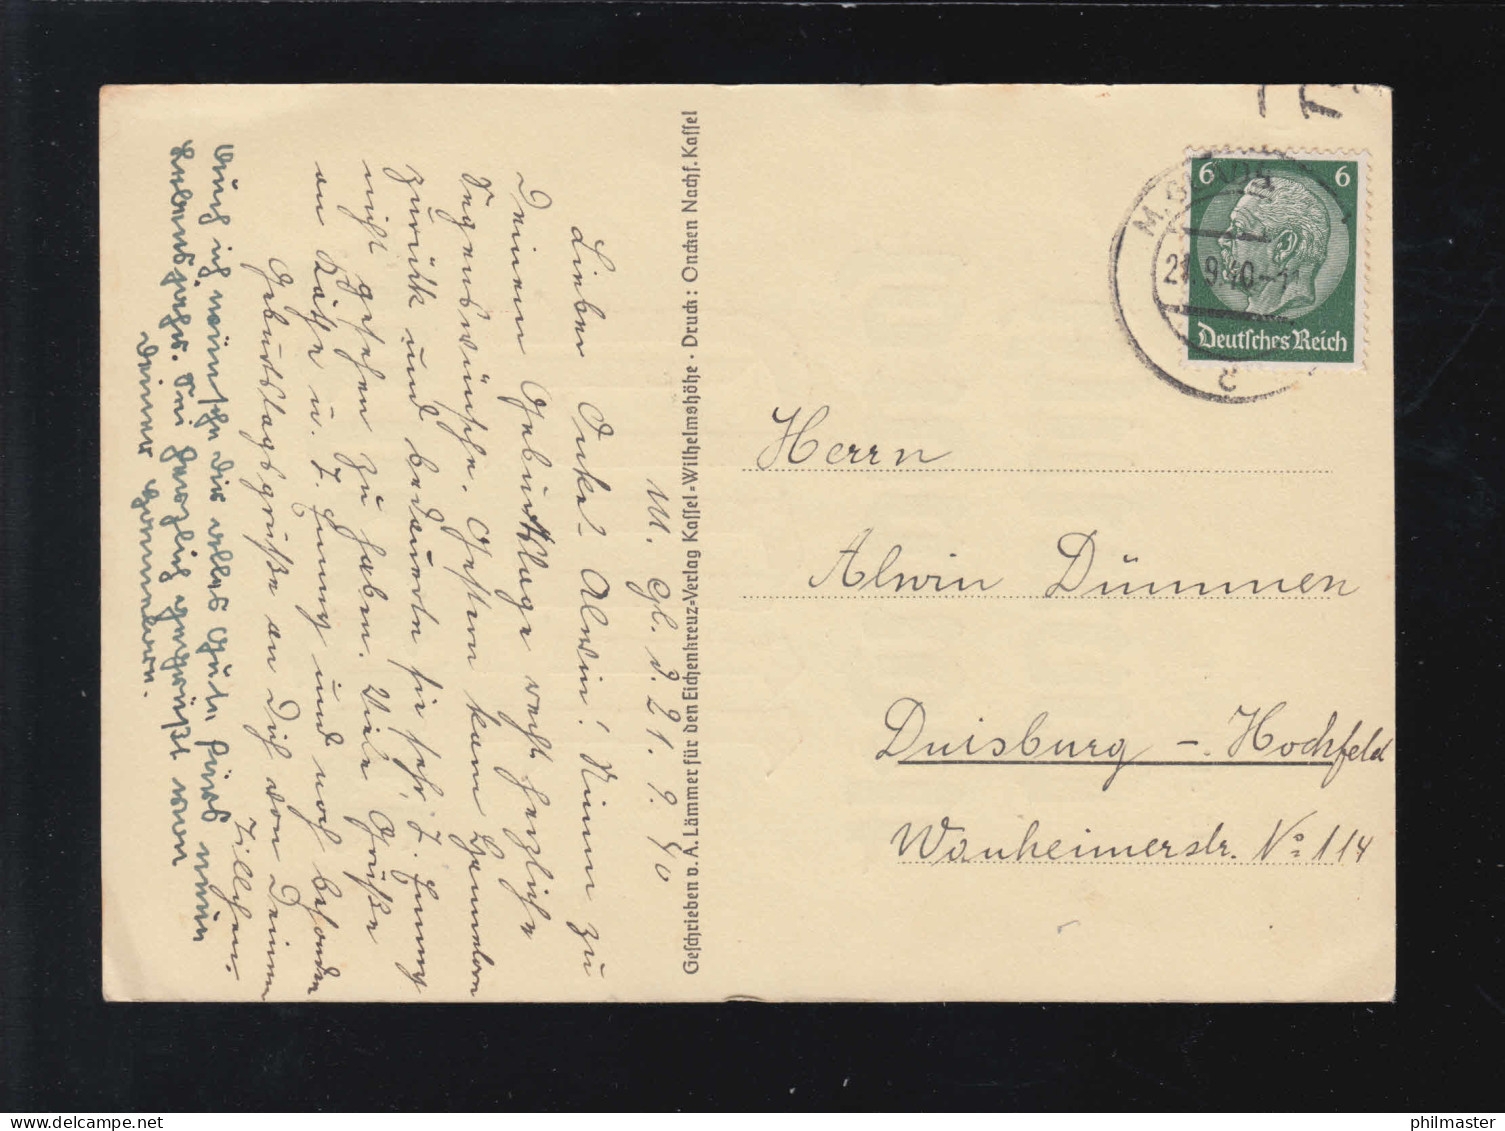 M. Gl. d. 21. 9. 40
Lieber Onkel Alwin! Nimm zu
Deinem Geburtstage recht herzliche
Segenswünsche. Gestern kam Hannelore
zurück und bedauerte sie sehr, T. Henny
nicht gesehen zu haben. Viele Grüße
an Käthe u. T. Henny und noch besonders
Geburtstagsgrüße an Dich von Deinem
Tillchen.
Auch ich wünsche dir alles Gute fürs neue
Lebensjahr. Sei herzlich gegrüßt von
Deiner Hannelore.
Geschrieben v. A. Lämmer für den Eichenkreuz-Verlag Kassel-Wilhelmshöhe · Druck: Oncken Nachf. Kassel
6 6
Deutsches Reich
M. GLADB
21.9.40
c
Herrn
Alwin Dümmen
Duisburg - Hochfeld
Wanheimerstr. No 114
philmaster